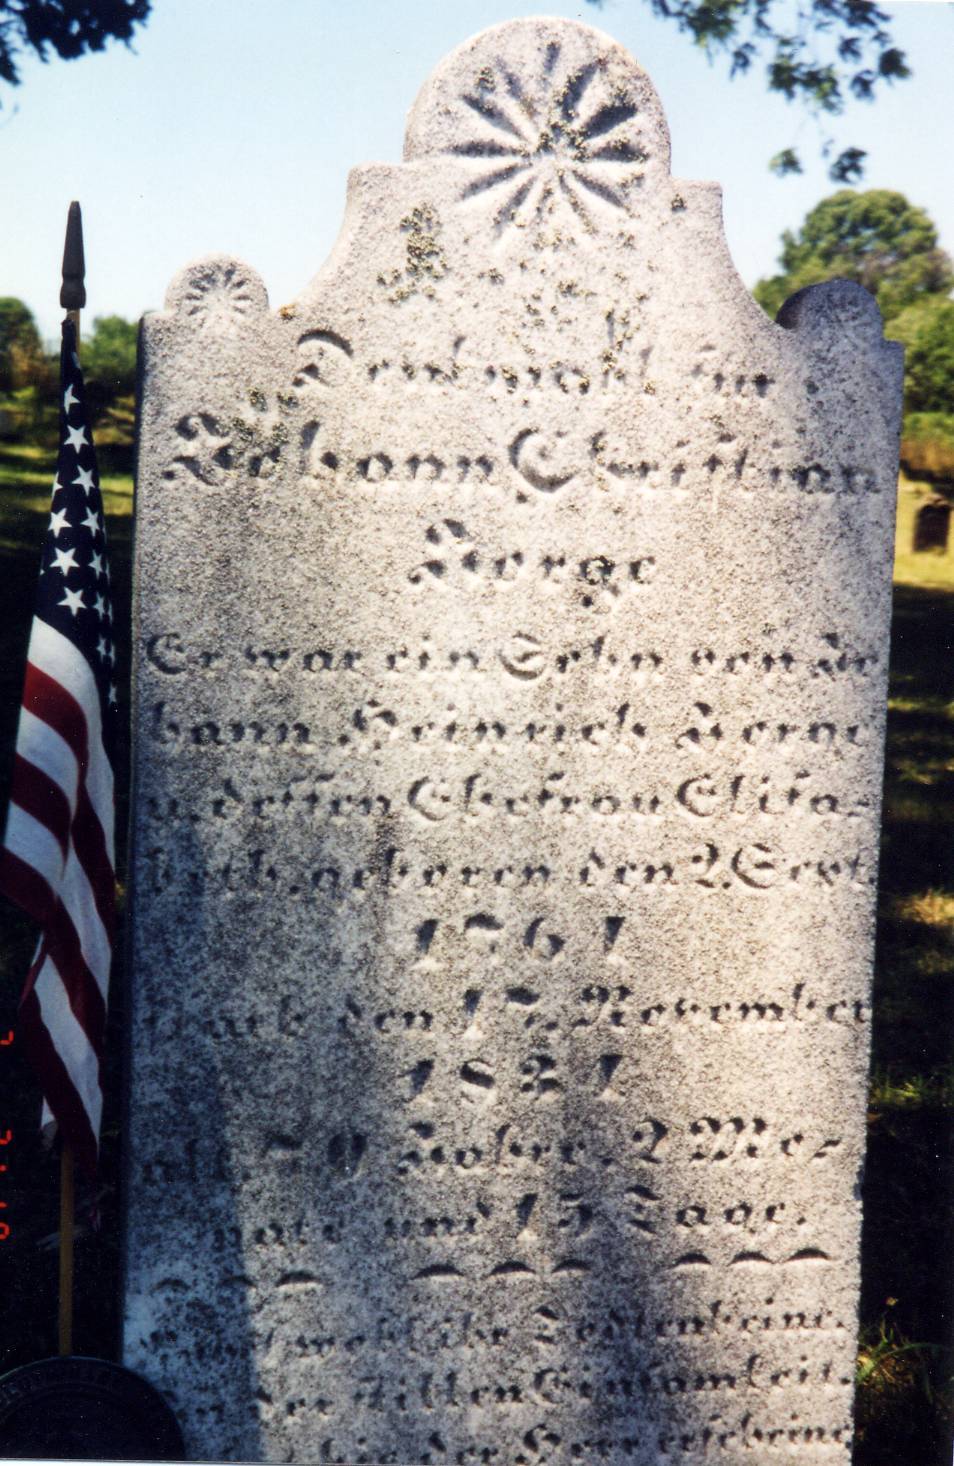 Denkmahl für
Johann Christian
Jorge
Er war ein Sohn von Jo
hann Heinrich Jorge
u. dessen Ehefrau Elisa=
beth. geboren den 2. Sept.
1761
starb den 17. November
1831
alt 70 Jahre. 2 Mo=
nate und 15 Tage.
Wohl euch ihr Todtenbeine.
der stillen Einsamkeit.
bis der Herr erscheine